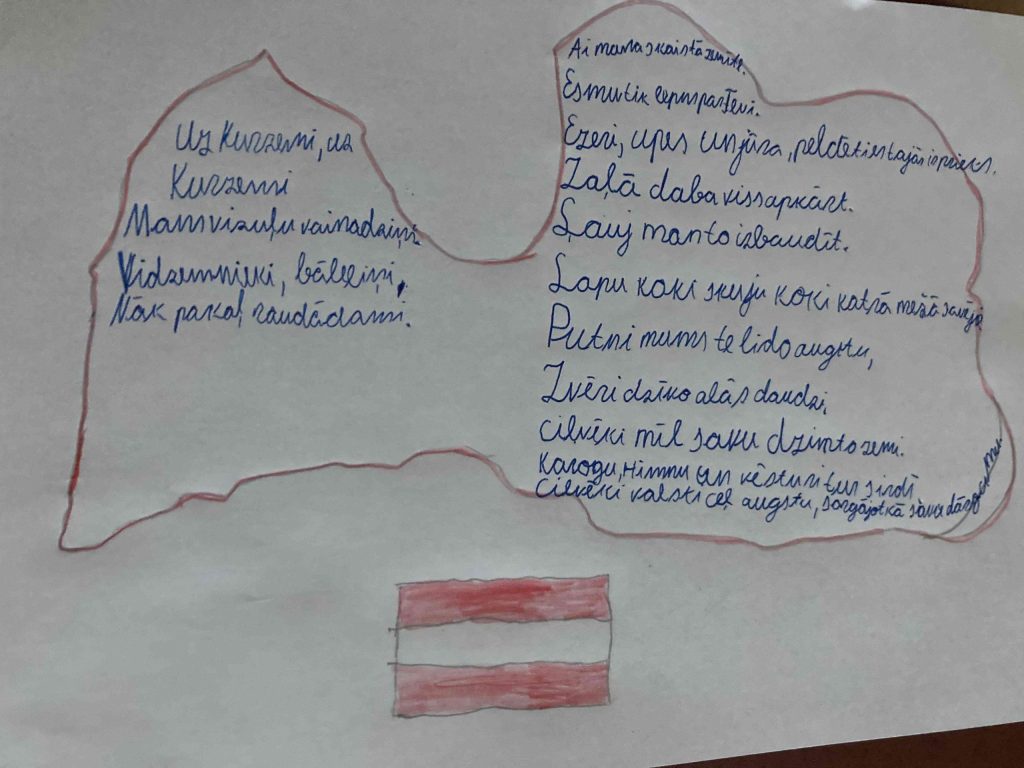 Uz Kurzemi, uz
Kurzemi
Mans vizuļu vainadziņš
Vidzemnieki, bāleliņi,
Nāk pakaļ raudādami.
Ai mana skaistā zemīte.
Esmu tik lepns par Tevi.
Ezeri, upes un jūra, peldēties tajās ir prieks.
Zaļā daba vissapkārt.
Ļauj man to izbaudīt.
Lapu koki skuju koki katrā mežā savējo
Putni mums te lido augstu,
Zvēri dzīvo alās daudzi,
Cilvēki mīl savu dzimto zemi.
Karogu, Himnu un vēsturi tur sirdī,
Cilvēki valsti ceļ augstu, sargājot kā savu dārgakmeni.